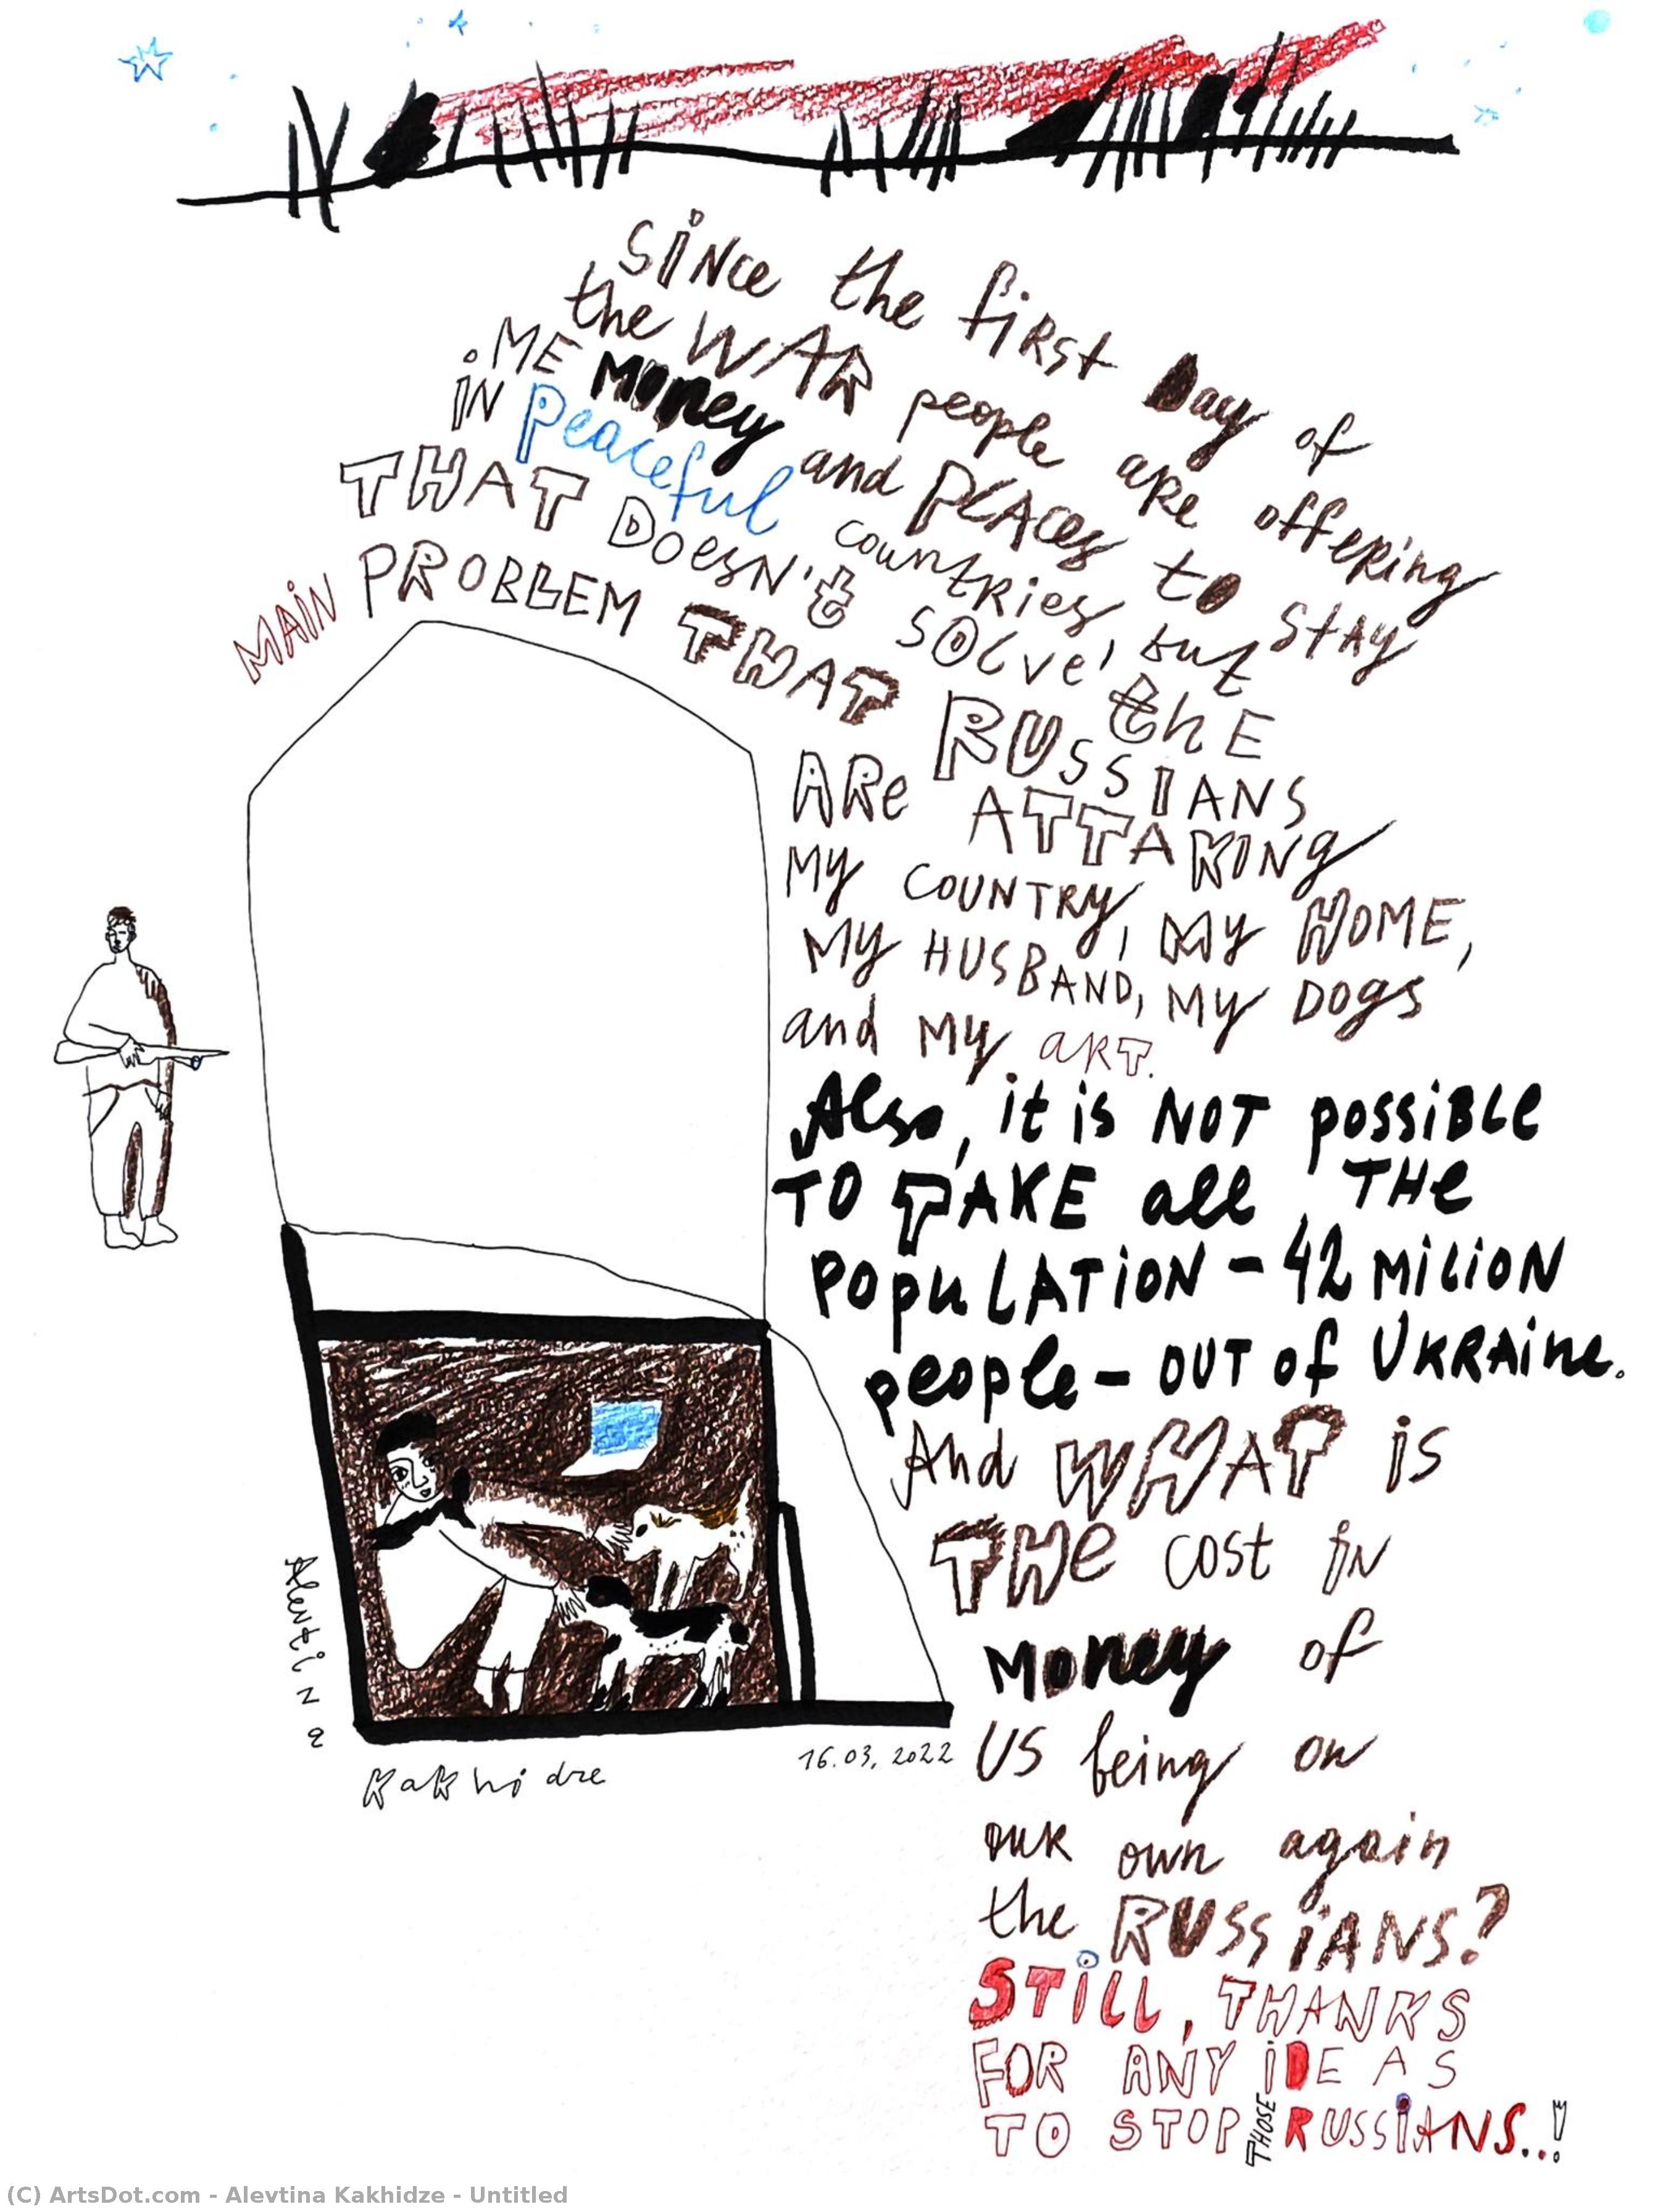 SINce the first Day of
the WAR people are offering
ME Money and PLACes to stay
IN peaceful countries, but
THAT DOesN't SOLve the
MAIN PROBLEM THAT RUSSIANS
ARe ATTAKING
My COUNTRy, My HOME,
My HUSBAND, My DOgs
and My ART.
Also, it is NOT possiBLe
TO TAKE all THe
POPULATION – 42 MILION
people – OUT of UKRAine.
And WHAT is
THe cost in
Money of
US being on
our own again
the RUSSIANS?
STILL, THANKS
FOR ANY IDEAS
TO STOP THOSE RUSSIANS..!
Alevtina
Kakhidze
16.03.2022
(C) ArtsDot.com - Alevtina Kakhidze - Untitled